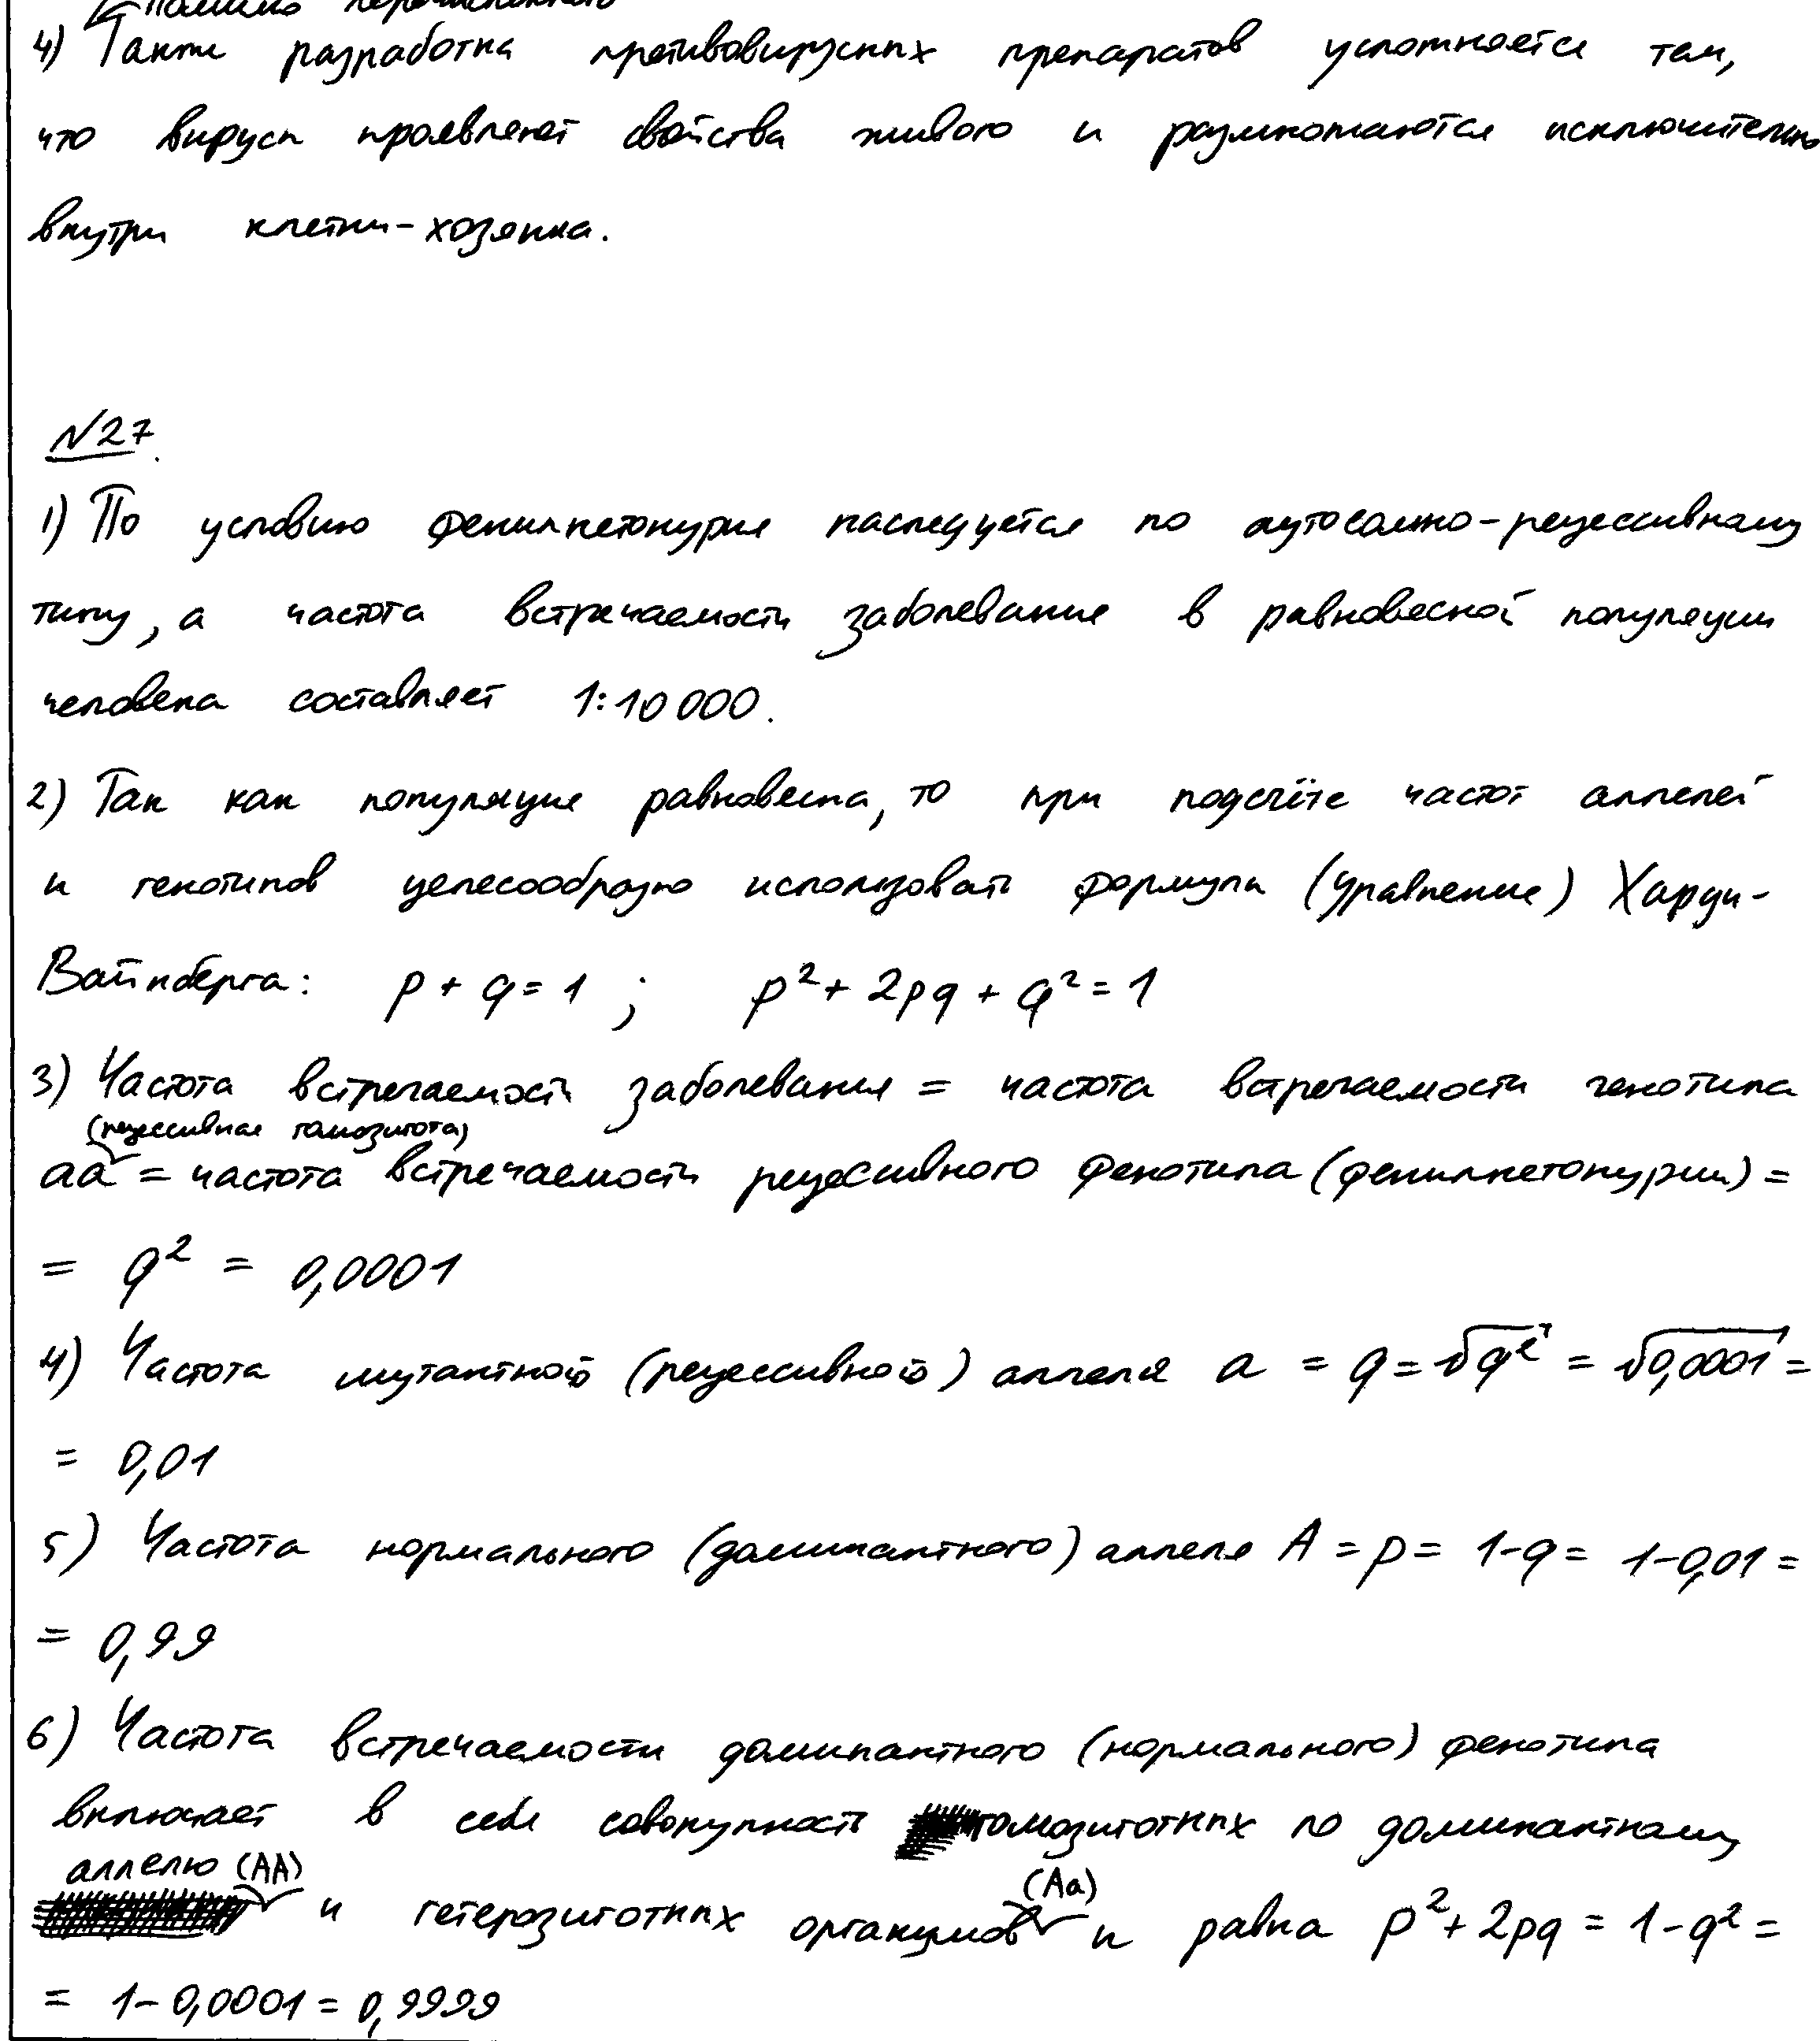 помимо перечисленного
4) Также разработка противовирусных препаратов усложняется тем,
что вирусы проявляют свойства живого и размножаются исключительно
внутри клетки-хозяина.
№27.
1) По условию фенилкетонурия наследуется по аутосомно-рецессивному
типу, а частота встречаемости заболевания в равновесной популяции
человека составляет 1:10 000.
2) Так как популяция равновесна, то при подсчёте частот аллелей
и генотипов целесообразно использовать формулы (уравнение) Харди-
Вайнберга: p + q = 1 ; p² + 2pq + q² = 1
3) Частота встречаемости заболевания = частота встречаемости генотипа
(рецессивная гомозигота)
aa = частота встречаемости рецессивного фенотипа (фенилкетонурии) =
= q² = 0,0001
4) Частота мутантной (рецессивной) аллели a = q = √q² = √0,0001 =
= 0,01
5) Частота нормального (доминантного) аллеля A = p = 1-q = 1-0,01 =
= 0,99
6) Частота встречаемости доминантного (нормального) фенотипа
включает в себя совокупность гомозиготных по доминантному
аллелю (AA) и гетерозиготных организмов (Aa) и равна p² + 2pq = 1-q² =
= 1-0,0001 = 0,9999